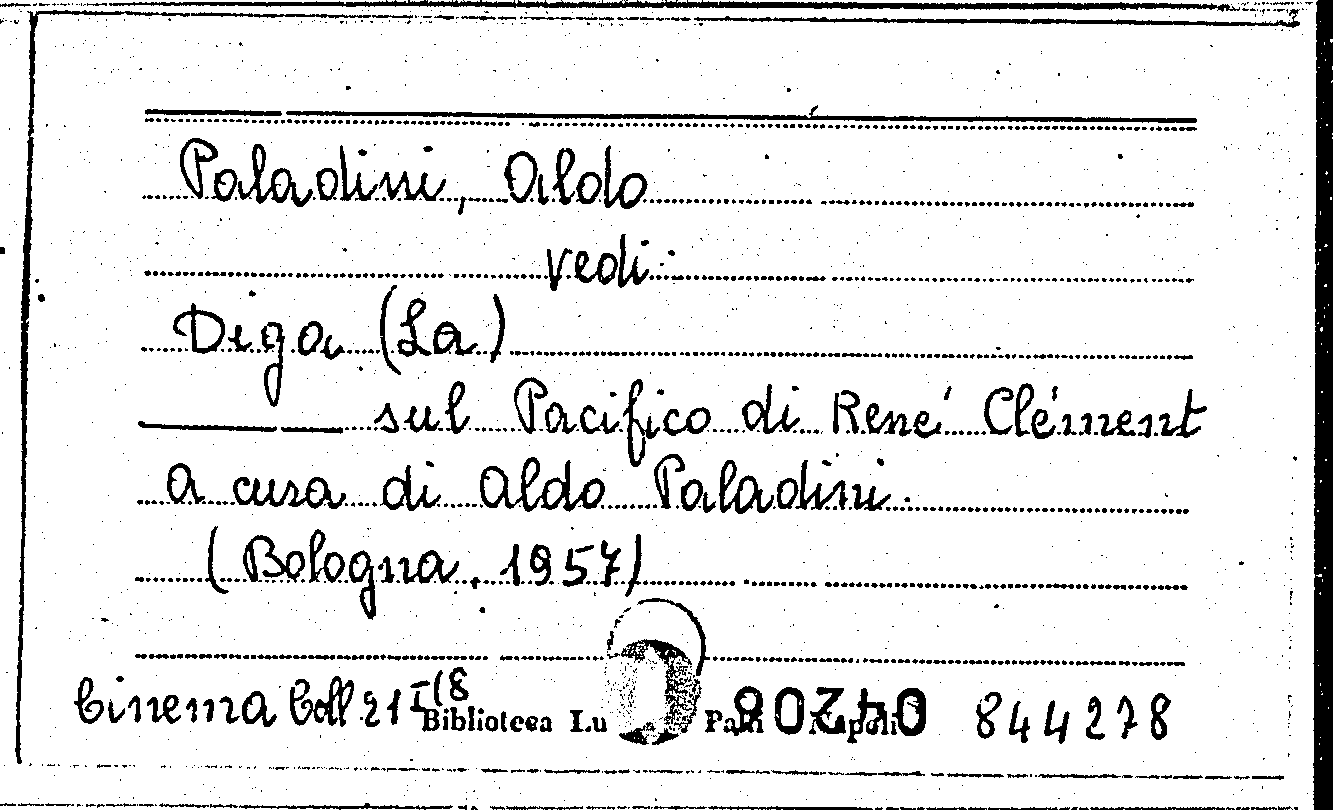 Paladini, Aldo
vedi:
Diga (La)
——— sul Pacifico di René Clément
a cura di Aldo Paladini.
(Bologna, 1957)
Cinema Coll. 21 I(8 Biblioteca Lu Napoli 844278